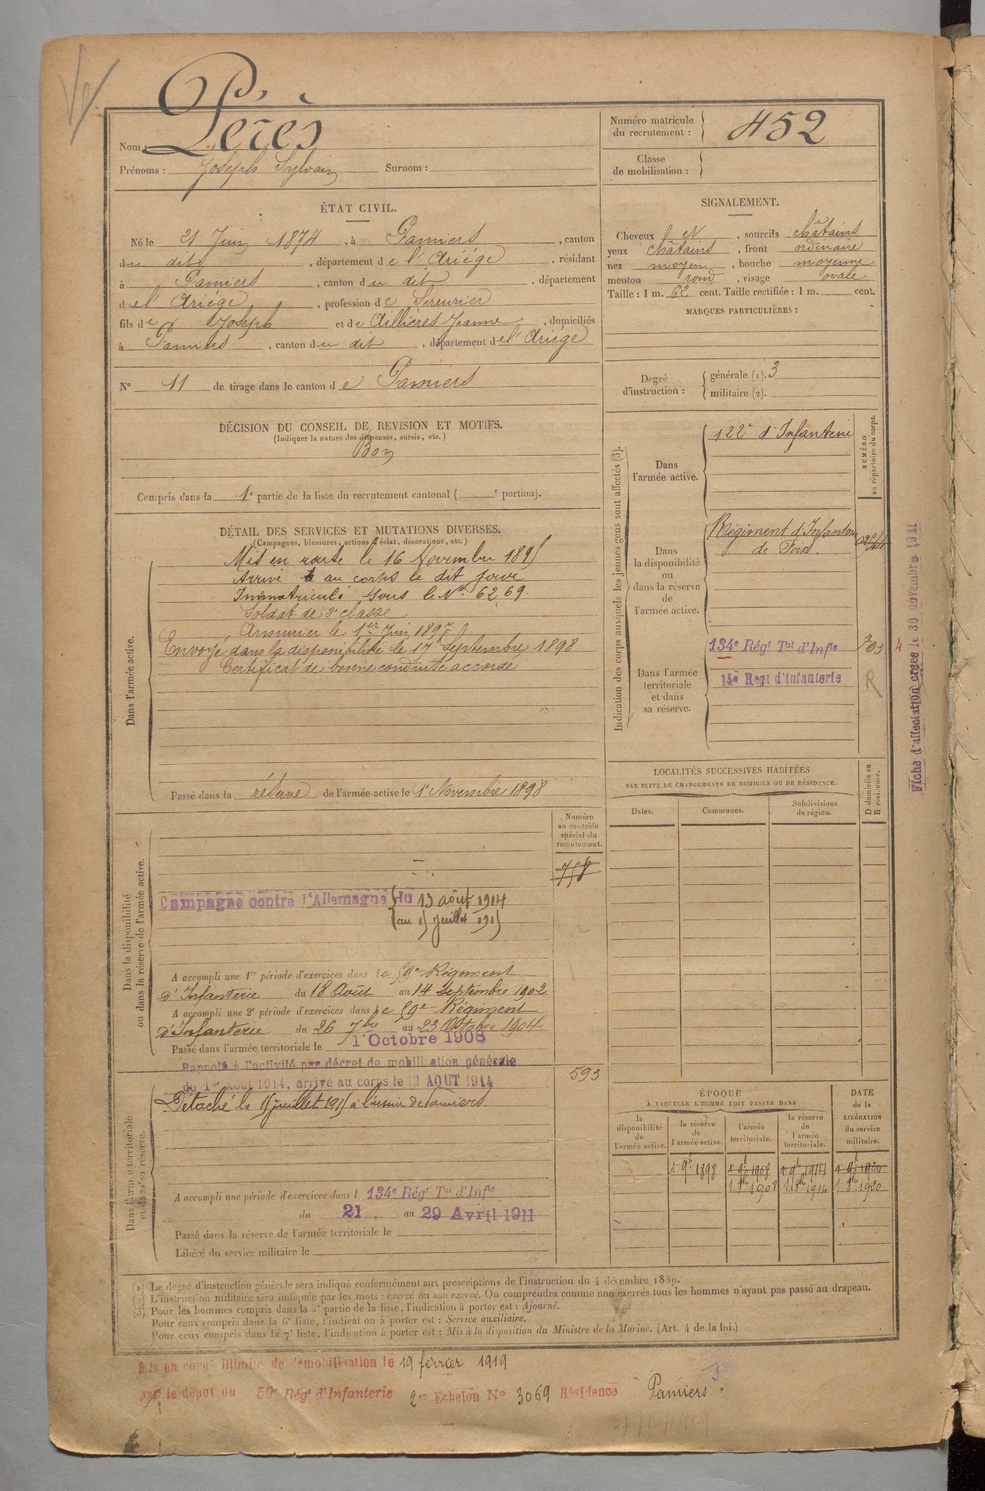 Nom : Pérès
Prénoms : Joseph Sylvain Surnom :
Numéro matricule du recrutement : 452
Classe de mobilisation :
ÉTAT CIVIL.
Né le 21 Juin 1874, à Pamiers, canton
du dit, département de l'Ariège, résidant
à Pamiers, canton du dit, département
de l'Ariège, profession de Serrurier
fils de Joseph et de Allières Jeanne, domiciliés
à Pamiers, canton du dit, département de l'Ariège
N° 11 de tirage dans le canton de Pamiers
SIGNALEMENT.
Cheveux N, sourcils châtains
yeux châtains, front ordinaire
nez moyen, bouche moyenne
menton rond, visage ovale
Taille : 1 m. 62 cent. Taille rectifiée : 1 m. cent.
MARQUES PARTICULIÈRES :
Degré d'instruction : générale (1). 3
militaire (2).
DÉCISION DU CONSEIL DE REVISION ET MOTIFS.
(Indiquer la nature des dispenses, sursis, etc.)
Bon
Compris dans la 1e partie de la liste du recrutement cantonal ( e portion).
DÉTAIL DES SERVICES ET MUTATIONS DIVERSES.
(Campagnes, blessures, actions d'éclat, décorations, etc.)
Dans l'armée active.
Mis en route le 16 Novembre 1895
Arrivé au corps le dit jour
Immatriculé sous le N° 6269
Soldat de 2e classe
Armurier le 1er Juin 1897
Envoyé dans la disponibilité le 17 Septembre 1898
Certificat de bonne conduite accordé
Passé dans la réserve de l'armée active le 1er Novembre 1898
Indication des corps auxquels les jeunes gens sont affectés (3).
NUMÉRO au répertoire du corps.
Dans l'armée active.
122e d'Infanterie
Dans la disponibilité ou dans la réserve de l'armée active.
Régiment d'Infanterie
de Foix.
Dans l'armée territoriale et dans sa réserve.
134e Régt Tal d'Infie
14e Regt d'Infanterie
R
4
Fiche d'affectation créée le 30 novembre 1921
LOCALITÉS SUCCESSIVES HABITÉES
PAR SUITE DE CHANGEMENTS DE DOMICILE OU DE RÉSIDENCE.
Dates. Communes. Subdivisions de région.
D domicile ou R résidence.
Numéro au contrôle spécial du recrutement.
Dans la disponibilité ou dans la réserve de l'armée active.
Campagne contre l'Allemagne du 13 août 1914
au 15 juillet 1915
A accompli une 1re période d'exercices dans le 59e Régiment
d'Infanterie du 18 Août au 14 Septembre 1902
A accompli une 2e période d'exercices dans le 59e Régiment
d'Infanterie du 26 7bre au 23 Octobre 1904
Passé dans l'armée territoriale le 1 Octobre 1908
Rappelé à l'activité par décret de mobilisation générale
du 1er Aout 1914, arrivé au corps le 13 AOUT 1914
593
Dans l'armée territoriale et dans sa réserve.
Détaché le 15 juillet 1915 à l'usine de Pamiers.
A accompli une période d'exercices dans l 134e Régt Tal d'Infie
du 21 au 29 Avril 1911
Passé dans la réserve de l'armée territoriale le
Libéré du service militaire le
ÉPOQUE
À LAQUELLE L'HOMME DOIT PASSER DANS
la disponibilité de l'armée active.
la réserve de l'armée active.
l'armée territoriale.
la réserve de l'armée territoriale.
DATE de la LIBÉRATION du service militaire.
1 9e 1898
(1) Le degré d'instruction générale sera indiqué conformément aux prescriptions de l'instruction du 4 décembre 1889.
L'instruction militaire sera indiquée par les mots : exercé ou non exercé. On comprendra comme non exercés tous les hommes n'ayant pas passé au drapeau.
Pour les hommes compris dans la 5e partie de la liste, l'indication à porter est : Ajourné.
Pour ceux compris dans la 6e liste, l'indication à porter est : Service auxiliaire.
Pour ceux compris dans la 7e liste, l'indication à porter est : Mis à la disposition du Ministre de la Marine. (Art. 4 de la loi.)
Mis en congé illimité de démobilisation le 19 février 1919
par le dépôt du 59e Régt d'Infanterie 2e Echelon N° 3069 Résidence Pamiers